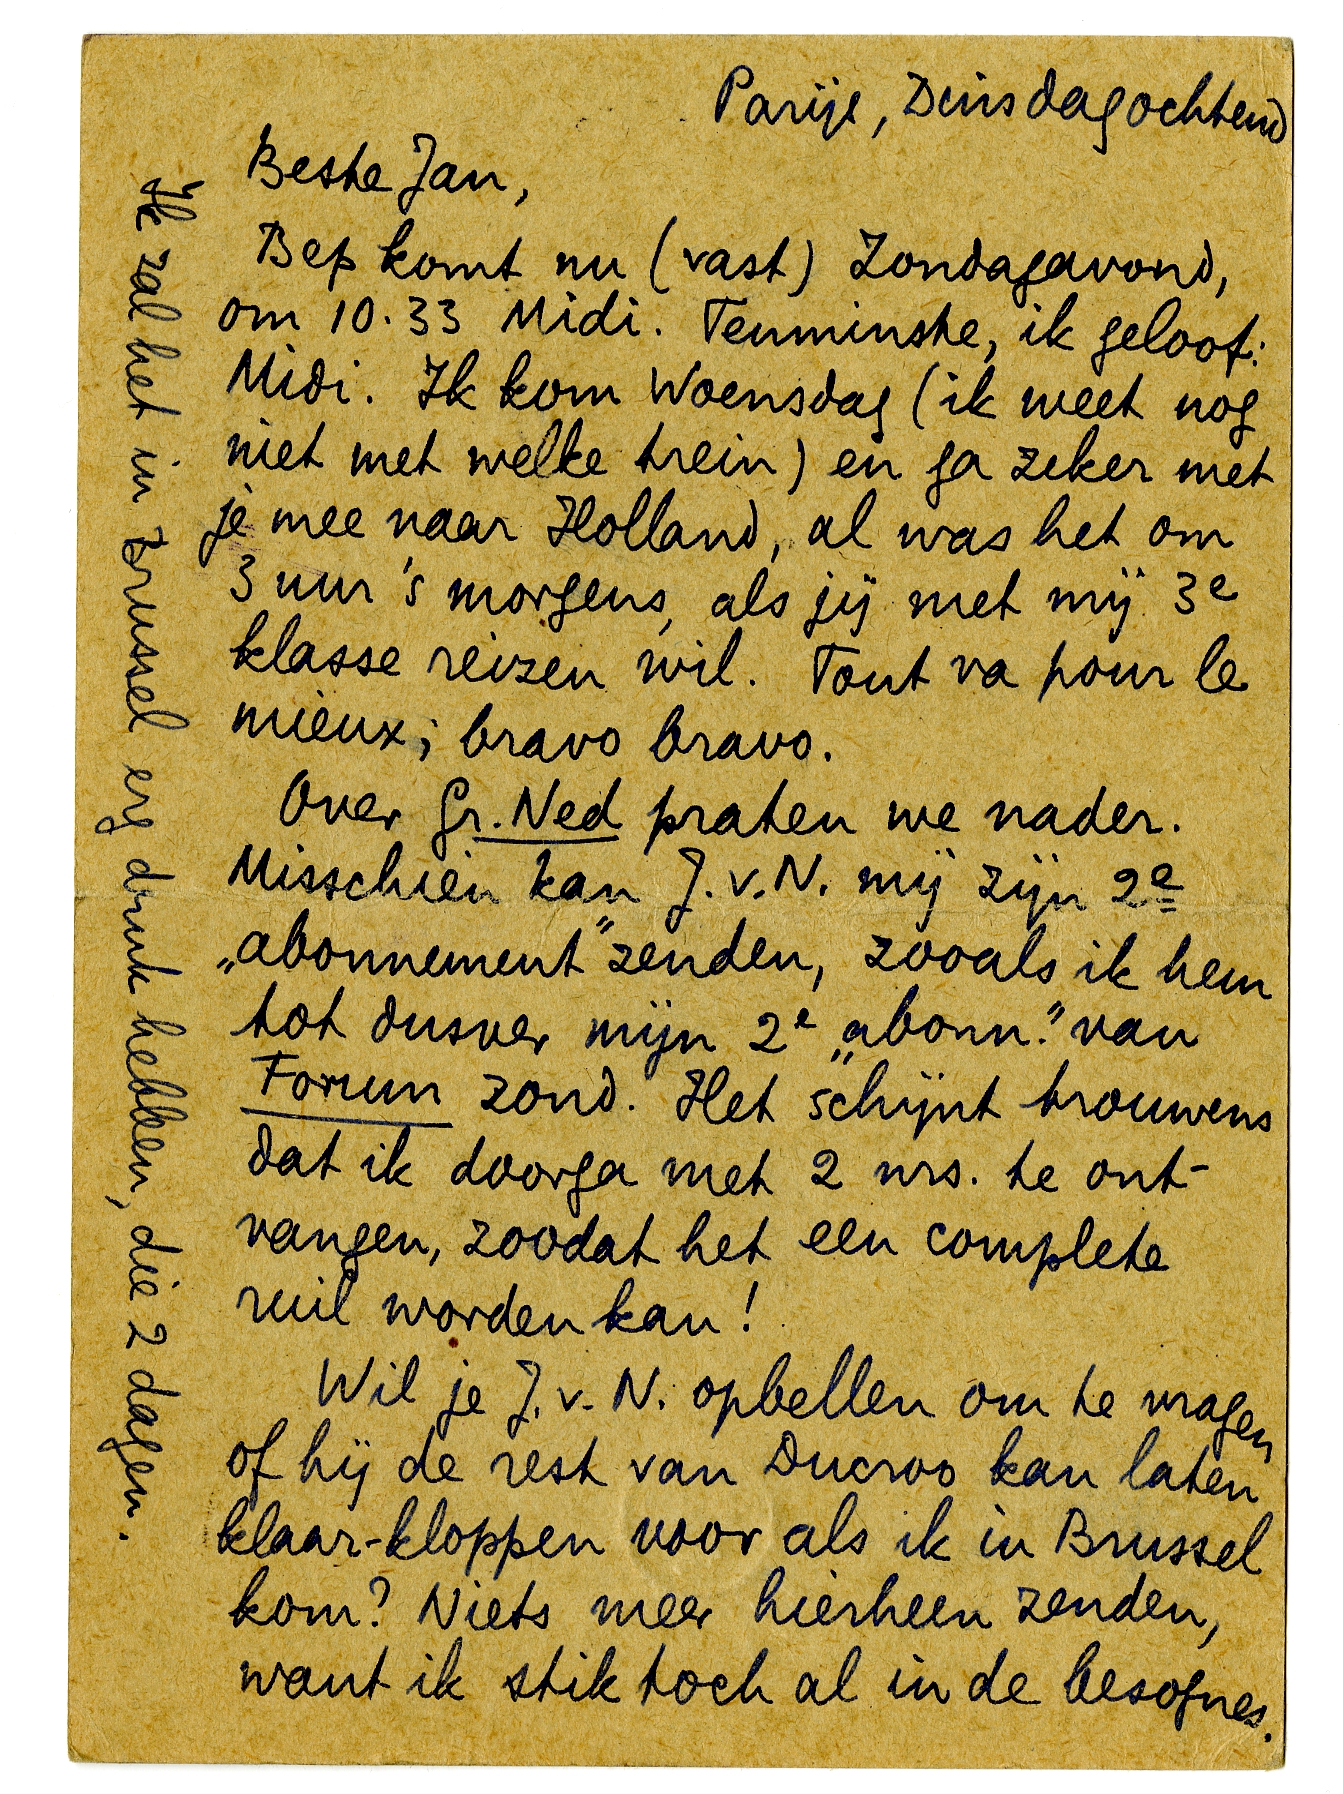 Parijs, Dinsdagochtend
Beste Jan,
Bep komt nu (vast) Zondagavond,
om 10.33 Midi. Tenminste, ik geloof:
Midi. Ik kom Woensdag (ik weet nog
niet met welke trein) en ga zeker met
je mee naar Holland, al was het om
3 uur 's morgens, als jij met mij 3e
klasse reizen wil. Tout va pour le
mieux; bravo bravo.
Over Gr. Ned praten we nader.
Misschien kan J. v. N. mij zijn 2e
„abonnement” zenden, zooals ik hem
tot dusver mijn 2e „abonn.” van
Forum zond. Het schijnt trouwens
dat ik doorga met 2 nrs. te ont-
vangen, zoodat het een complete
ruil worden kan!
Wil je J. v. N. opbellen om te vragen
of hij de rest van Ducroo kan laten
klaar-kloppen voor als ik in Brussel
kom? Niets meer hierheen zenden,
want ik stik toch al in de besognes.
Ik zal het in Brussel erg druk hebben, die 2 dagen.